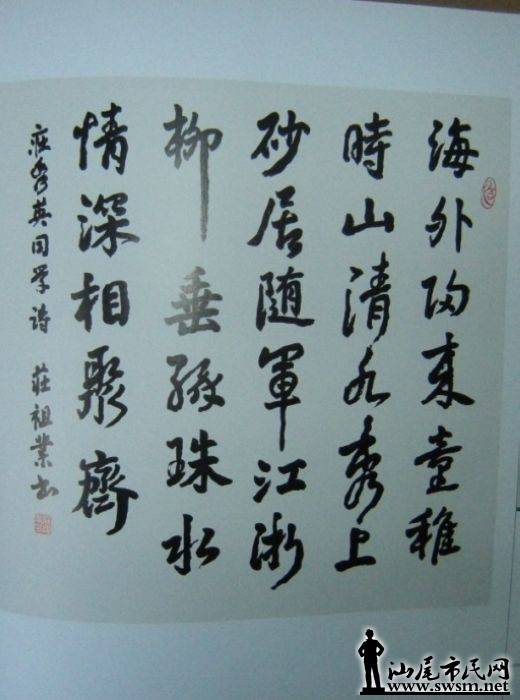 海外归来童稚
時山清水秀上
砂居随軍江浙
柳垂绿珠水
情深相聚齊
庄秀英同学诗 莊祖業书
汕尾市民网
www.swsm.net